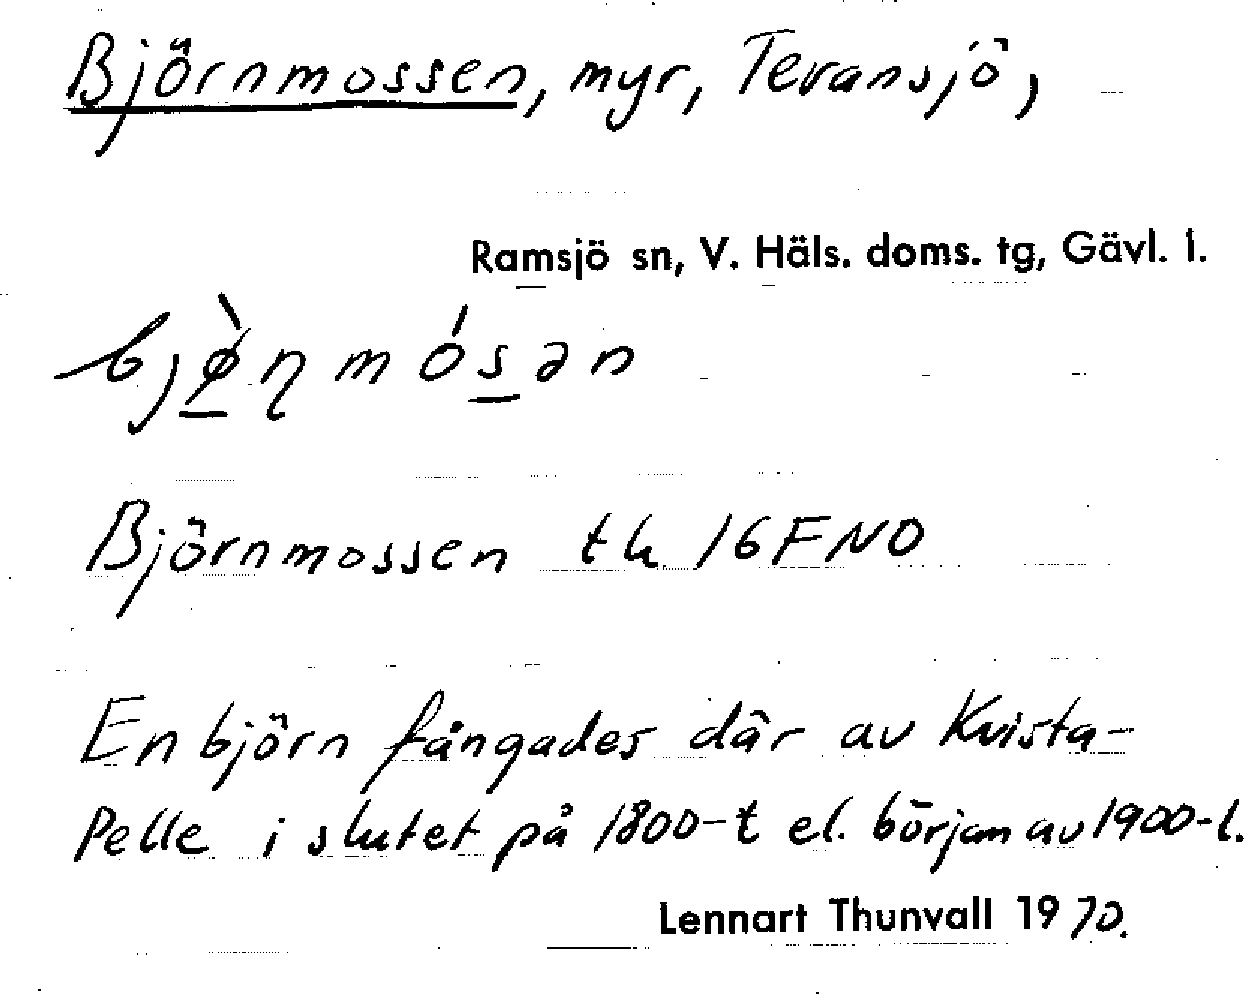 Björnmossen, myr, Tevansjö,
Ramsjö sn, V. Häls. doms. tg, Gävl. l.
bjø̀ɳmósən
Björnmossen tk 16F NO
En björn fångades där av Kvista-
Pelle i slutet på 1800-t el. början av 1900-t.
Lennart Thunvall 1970.